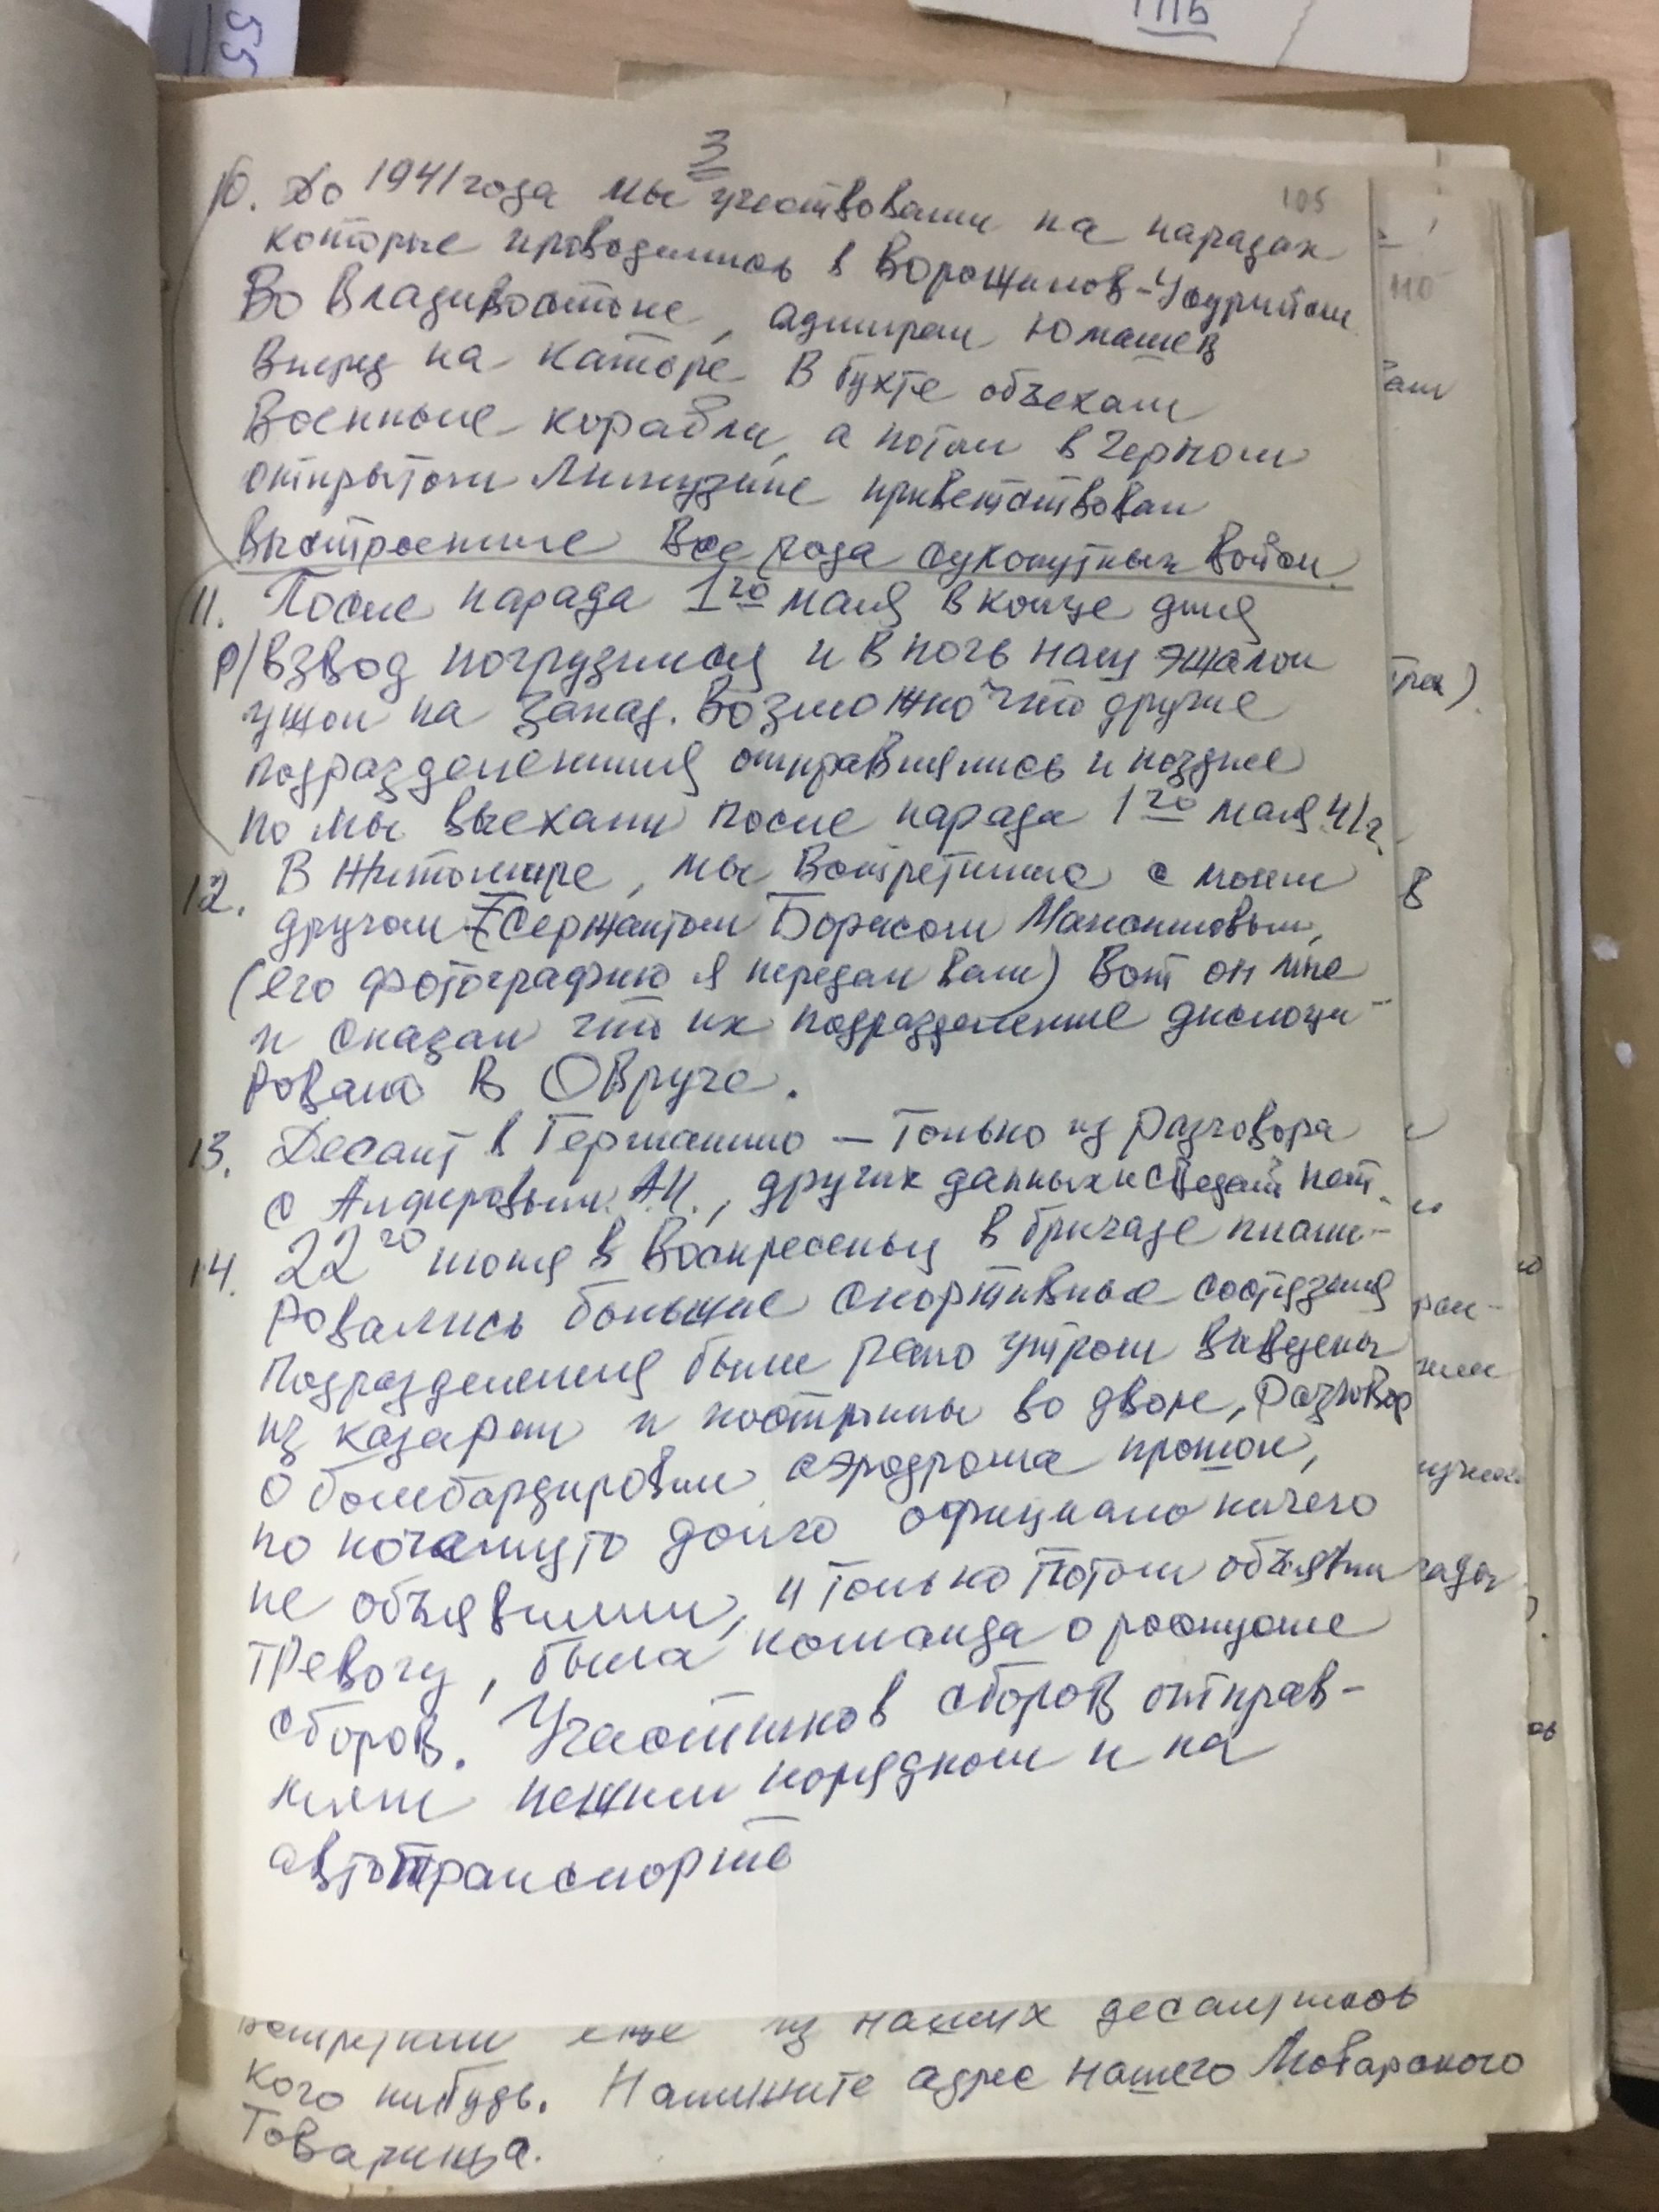 3
105
10. До 1941 года мы участвовали на парадах
которые проводились в Ворошилов-Уссурийском
Во Владивостоке, адмирал Юмашев
вперед на катере в бухте объехал
военные корабли, а потом в черном
открытом лимузине приветствовал
выстроенные все рода сухопутных войск.
11. После парада 1го мая в конце дня
р/взвод погрузился и в ночь наш эшалон
ушол на запад. Возможно что другие
подразделения отправились и позднее
но мы выехали после парада 1го мая 41г.
12. В Житомире, мы встретились с моим
другом Сержантом Борисом
(его фотографию я передал вам) Вот он мне
и сказал что их подразделение дислоци-
ровано в Овруче.
13. Десант в Германию — только из разговора
с Алфировым А.И., других данных и сведений нет.
14. 22го июня в Воскресенье в бригаде плани-
ровались большие спортивные состязания
Подразделения были рано утром выведены
из казарм и построены во дворе, Разговор
о бомбардировки аэродрома прошол,
но почемуто долго официально ничего
не объявили, и только потом объявили
тревогу, была команда о роспуске
сборов. Участников сборов отправ-
ляли пешим порядком и на
автотранспорте
встретили еще из наших десантников
кого нибудь. Напишите адрес нашего
Товарища.